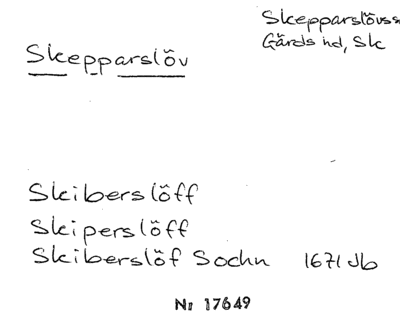 Skepparslövs
Gärds hd, Sk
Skepparslöv
Skiberslöff
Skiperslöff
Skiberslöf Sochn 1671 Jb
Nr 17649